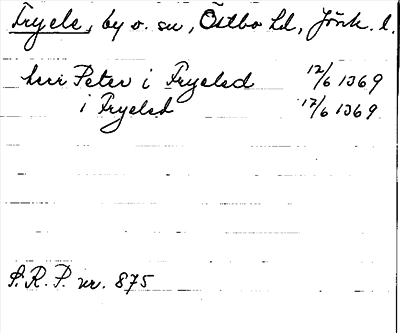 Fryele, by o. sn, Östbo hd, Jönk. l.
herr Peter i Fryelsd 12/6 1369
i Fryelsd 12/6 1369
S.R.P. nr. 875